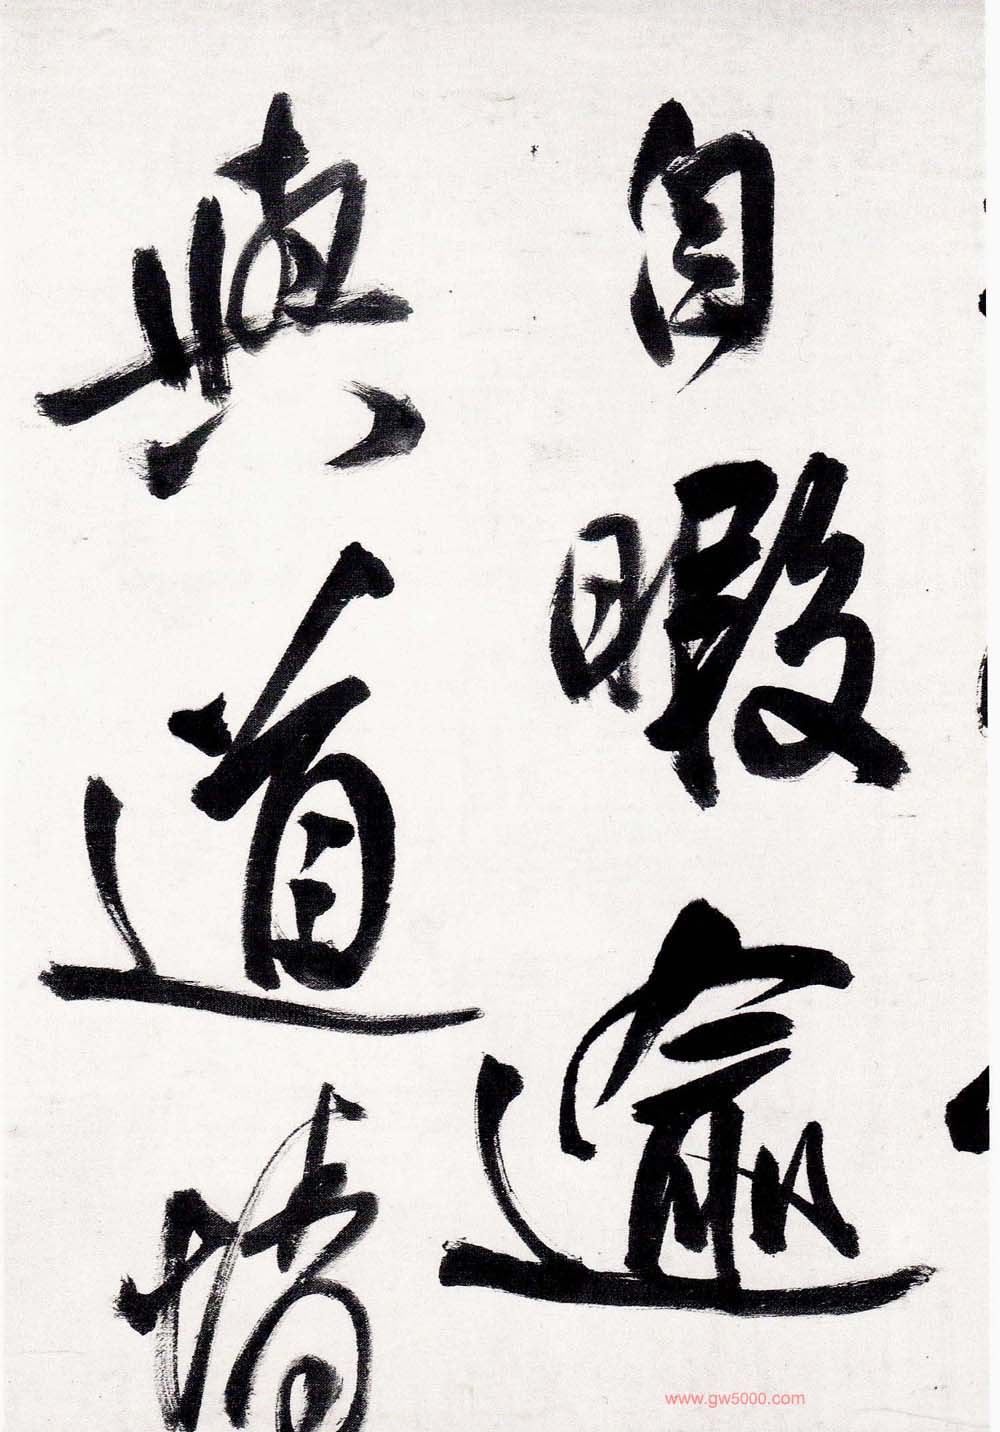 自暇逾
與道情
www.gw5000.com